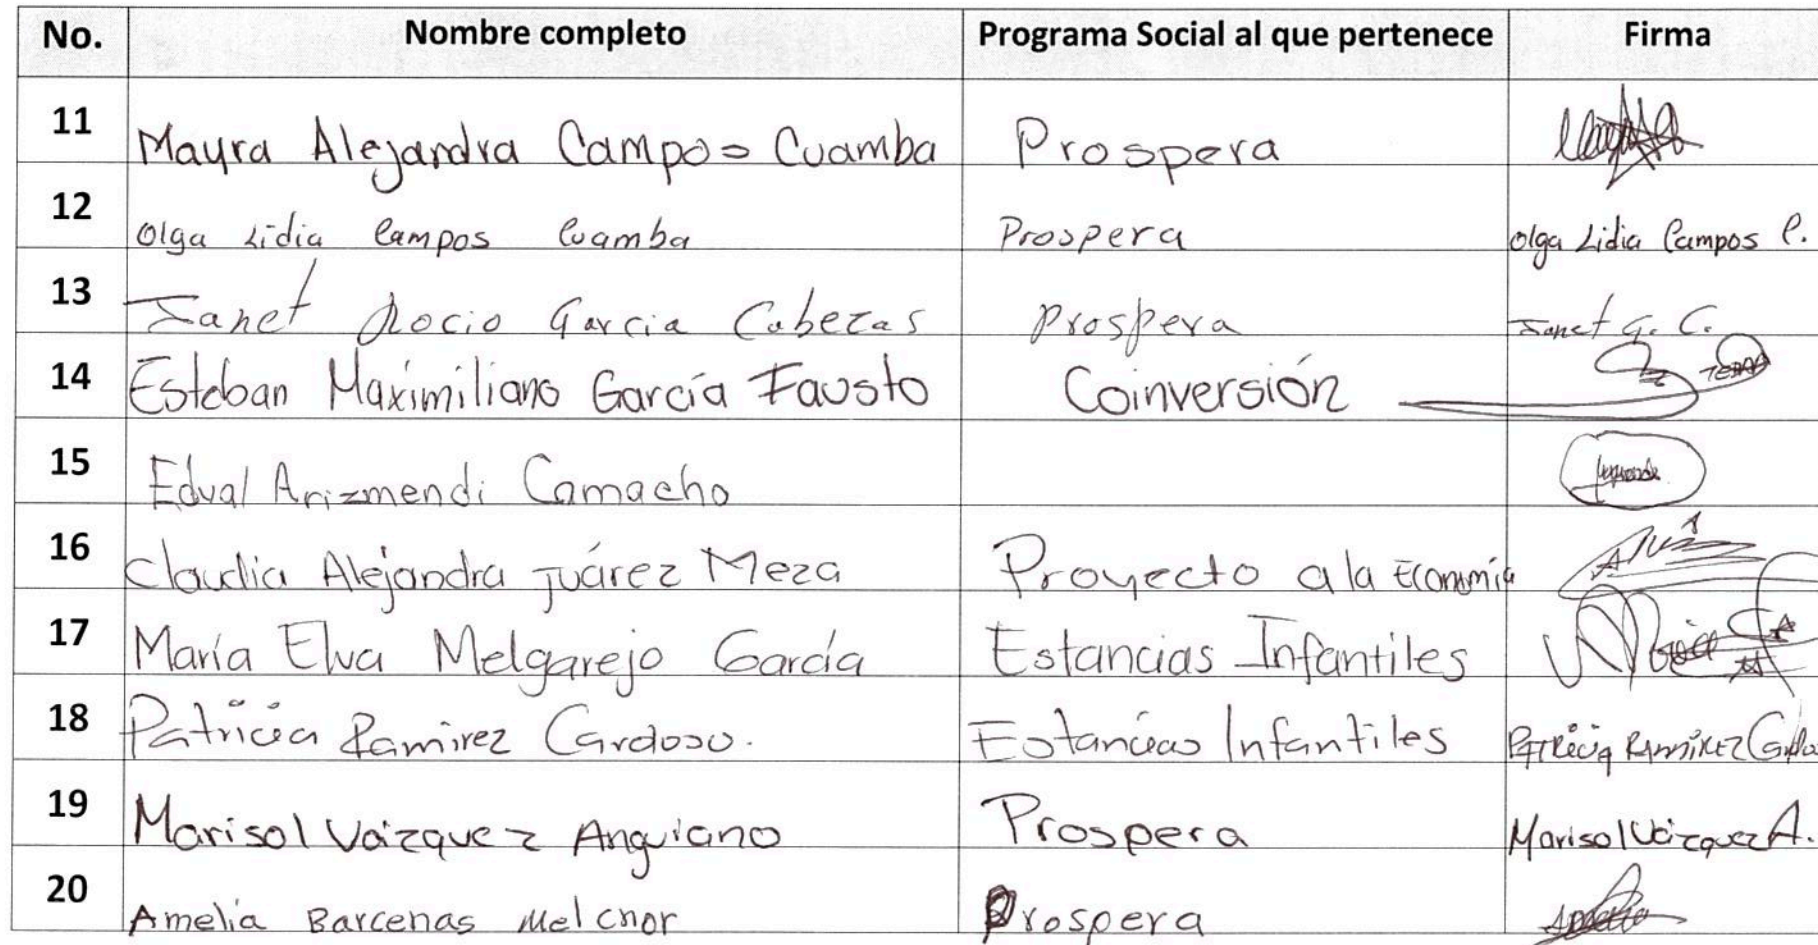 No. Nombre completo Programa Social al que pertenece Firma
11 Mayra Alejandra Campos Cuamba Prospera
12 Olga Lidia Campos Cuamba Prospera Olga Lidia Campos C.
13 Janet Rocio Garcia Cabezas Prospera Janet G. C.
14 Esteban Maximiliano García Fausto Coinversión
15 Edval Arizmendi Camacho
16 Claudia Alejandra Juárez Meza Proyecto a la Economía
17 María Elva Melgarejo García Estancias Infantiles
18 Patricia Ramirez Cardoso. Estancias Infantiles Patricia Ramírez
19 Marisol Vázquez Anguiano Prospera Marisol Vázquez A.
20 Amelia Barcenas Melchor Prospera